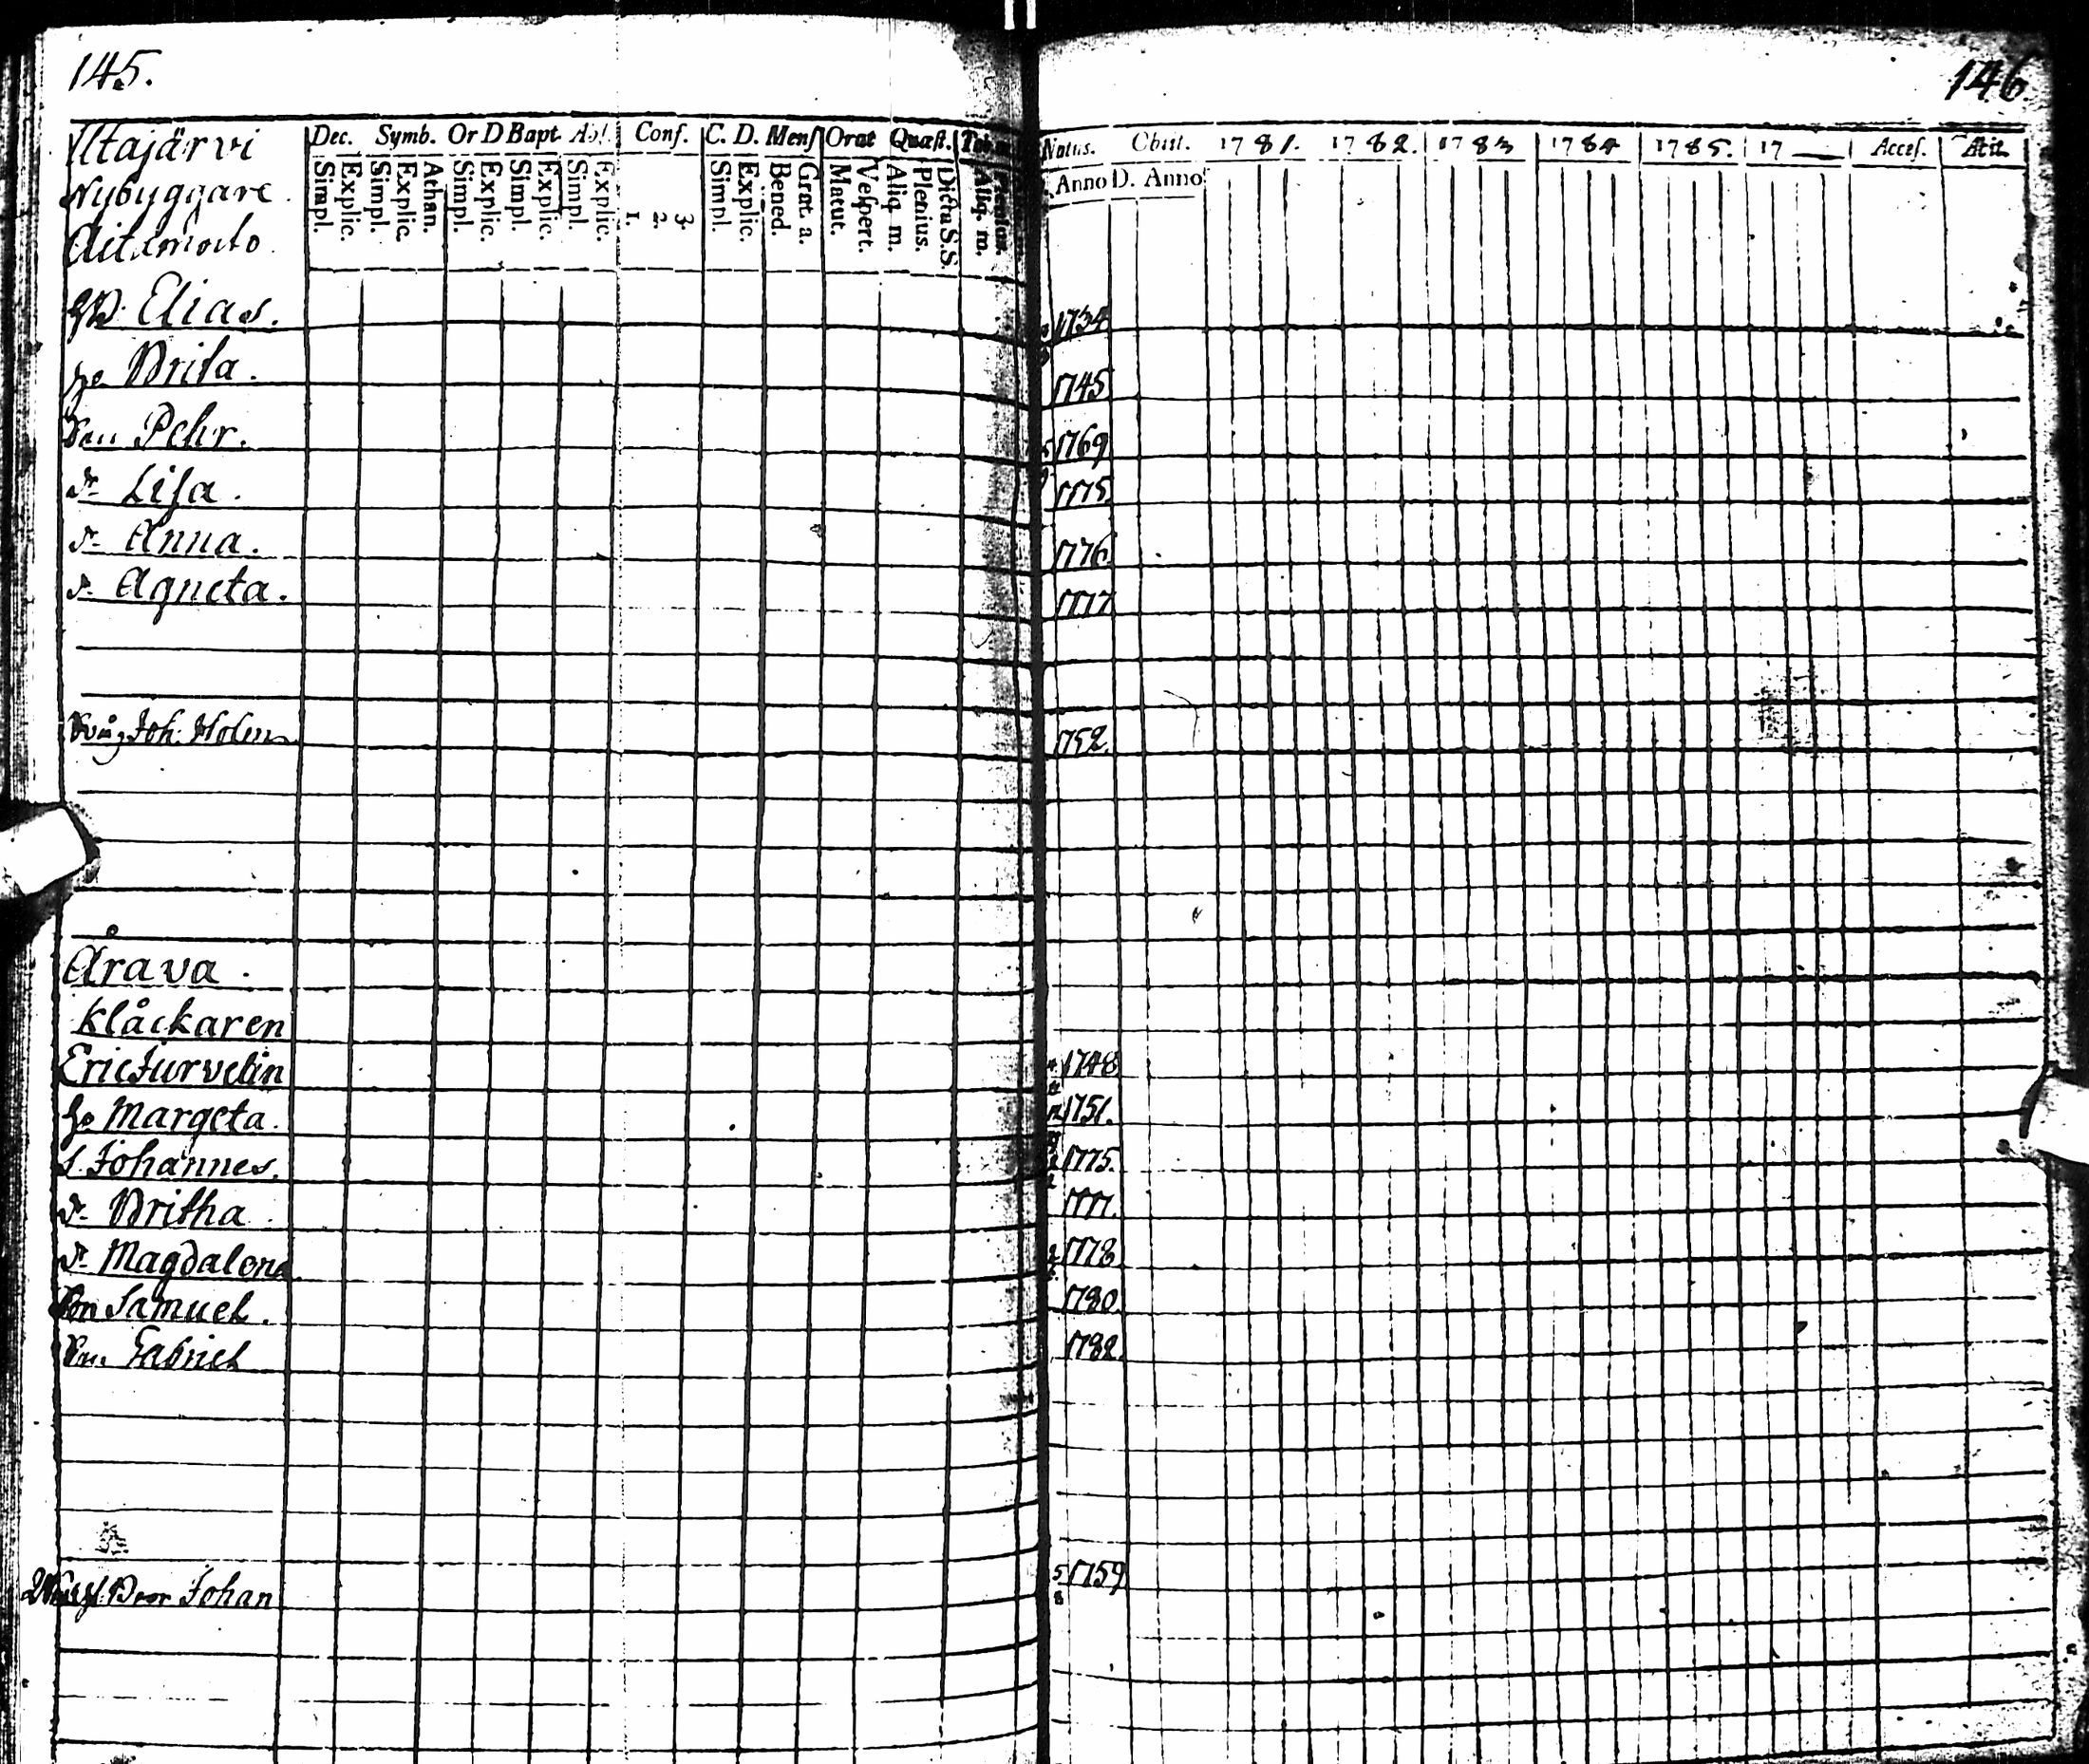 145.
146
Dec. Symb. Or D Bapt Abs. Conf. C. D. Mens Orat Quæst. Tab.
Simpl. Explic. Simpl. Explic. Athan. Simpl. Explic. Simpl. Explic. Simpl. Explic. 1. 2. 3. Simpl. Explic. Bened. Grat. a. Matut. Vespert. Aliq. m. Plenius. Dicta S.S. Aliq. m.
Natus. Obiit. 1781. 1782. 1783 1784 1785. 17 Acces. Abit.
Anno D. Anno
Iltajärvi
Nybyggare
Elias. 1734
Brita. 1745
Son Pehr. 1769
dr Lisa. 1775.
dr Anna. 1776.
dr Agneta. 1777
Joh. Holm 1752.
Årava.
klåckaren
Eric Turvelin 1748
Margeta. 1751.
S. Johannes. 1775.
dr Britha 1777.
dr Magdalena 1778
Son Samuel. 1780.
Son Gabriel 1782.
Johan 5/8 1759